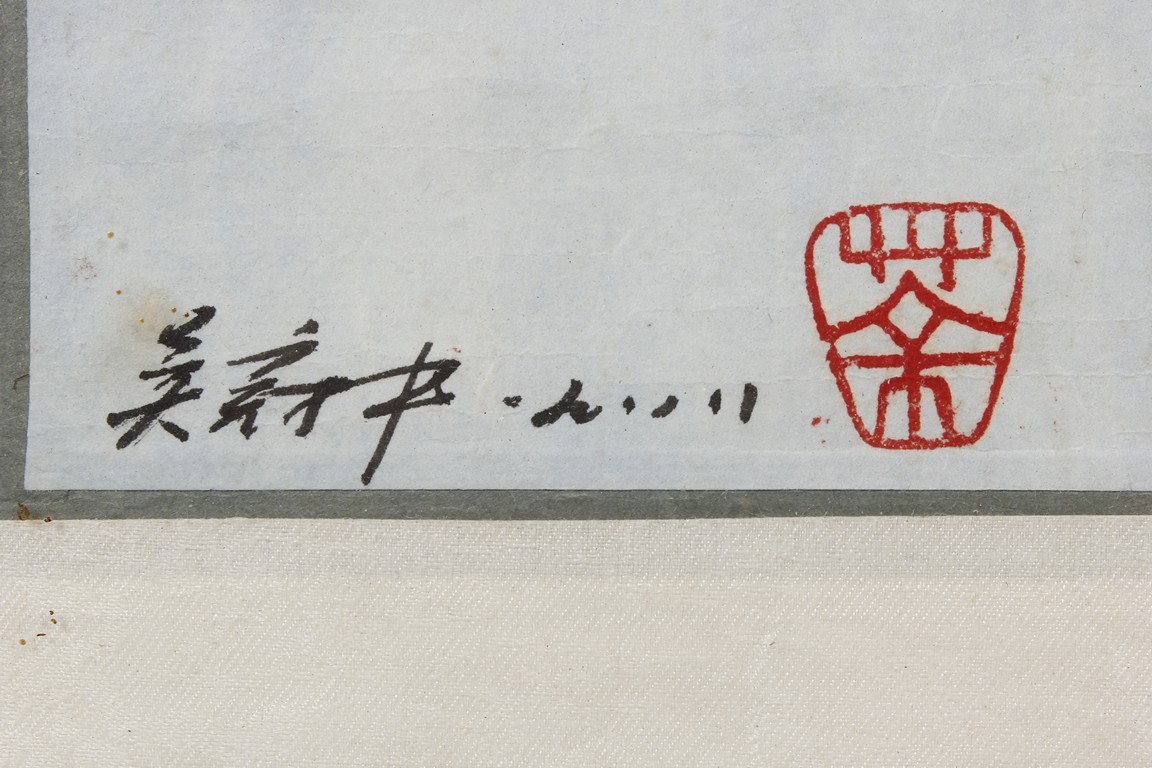 吴冠中 一九八八 荼